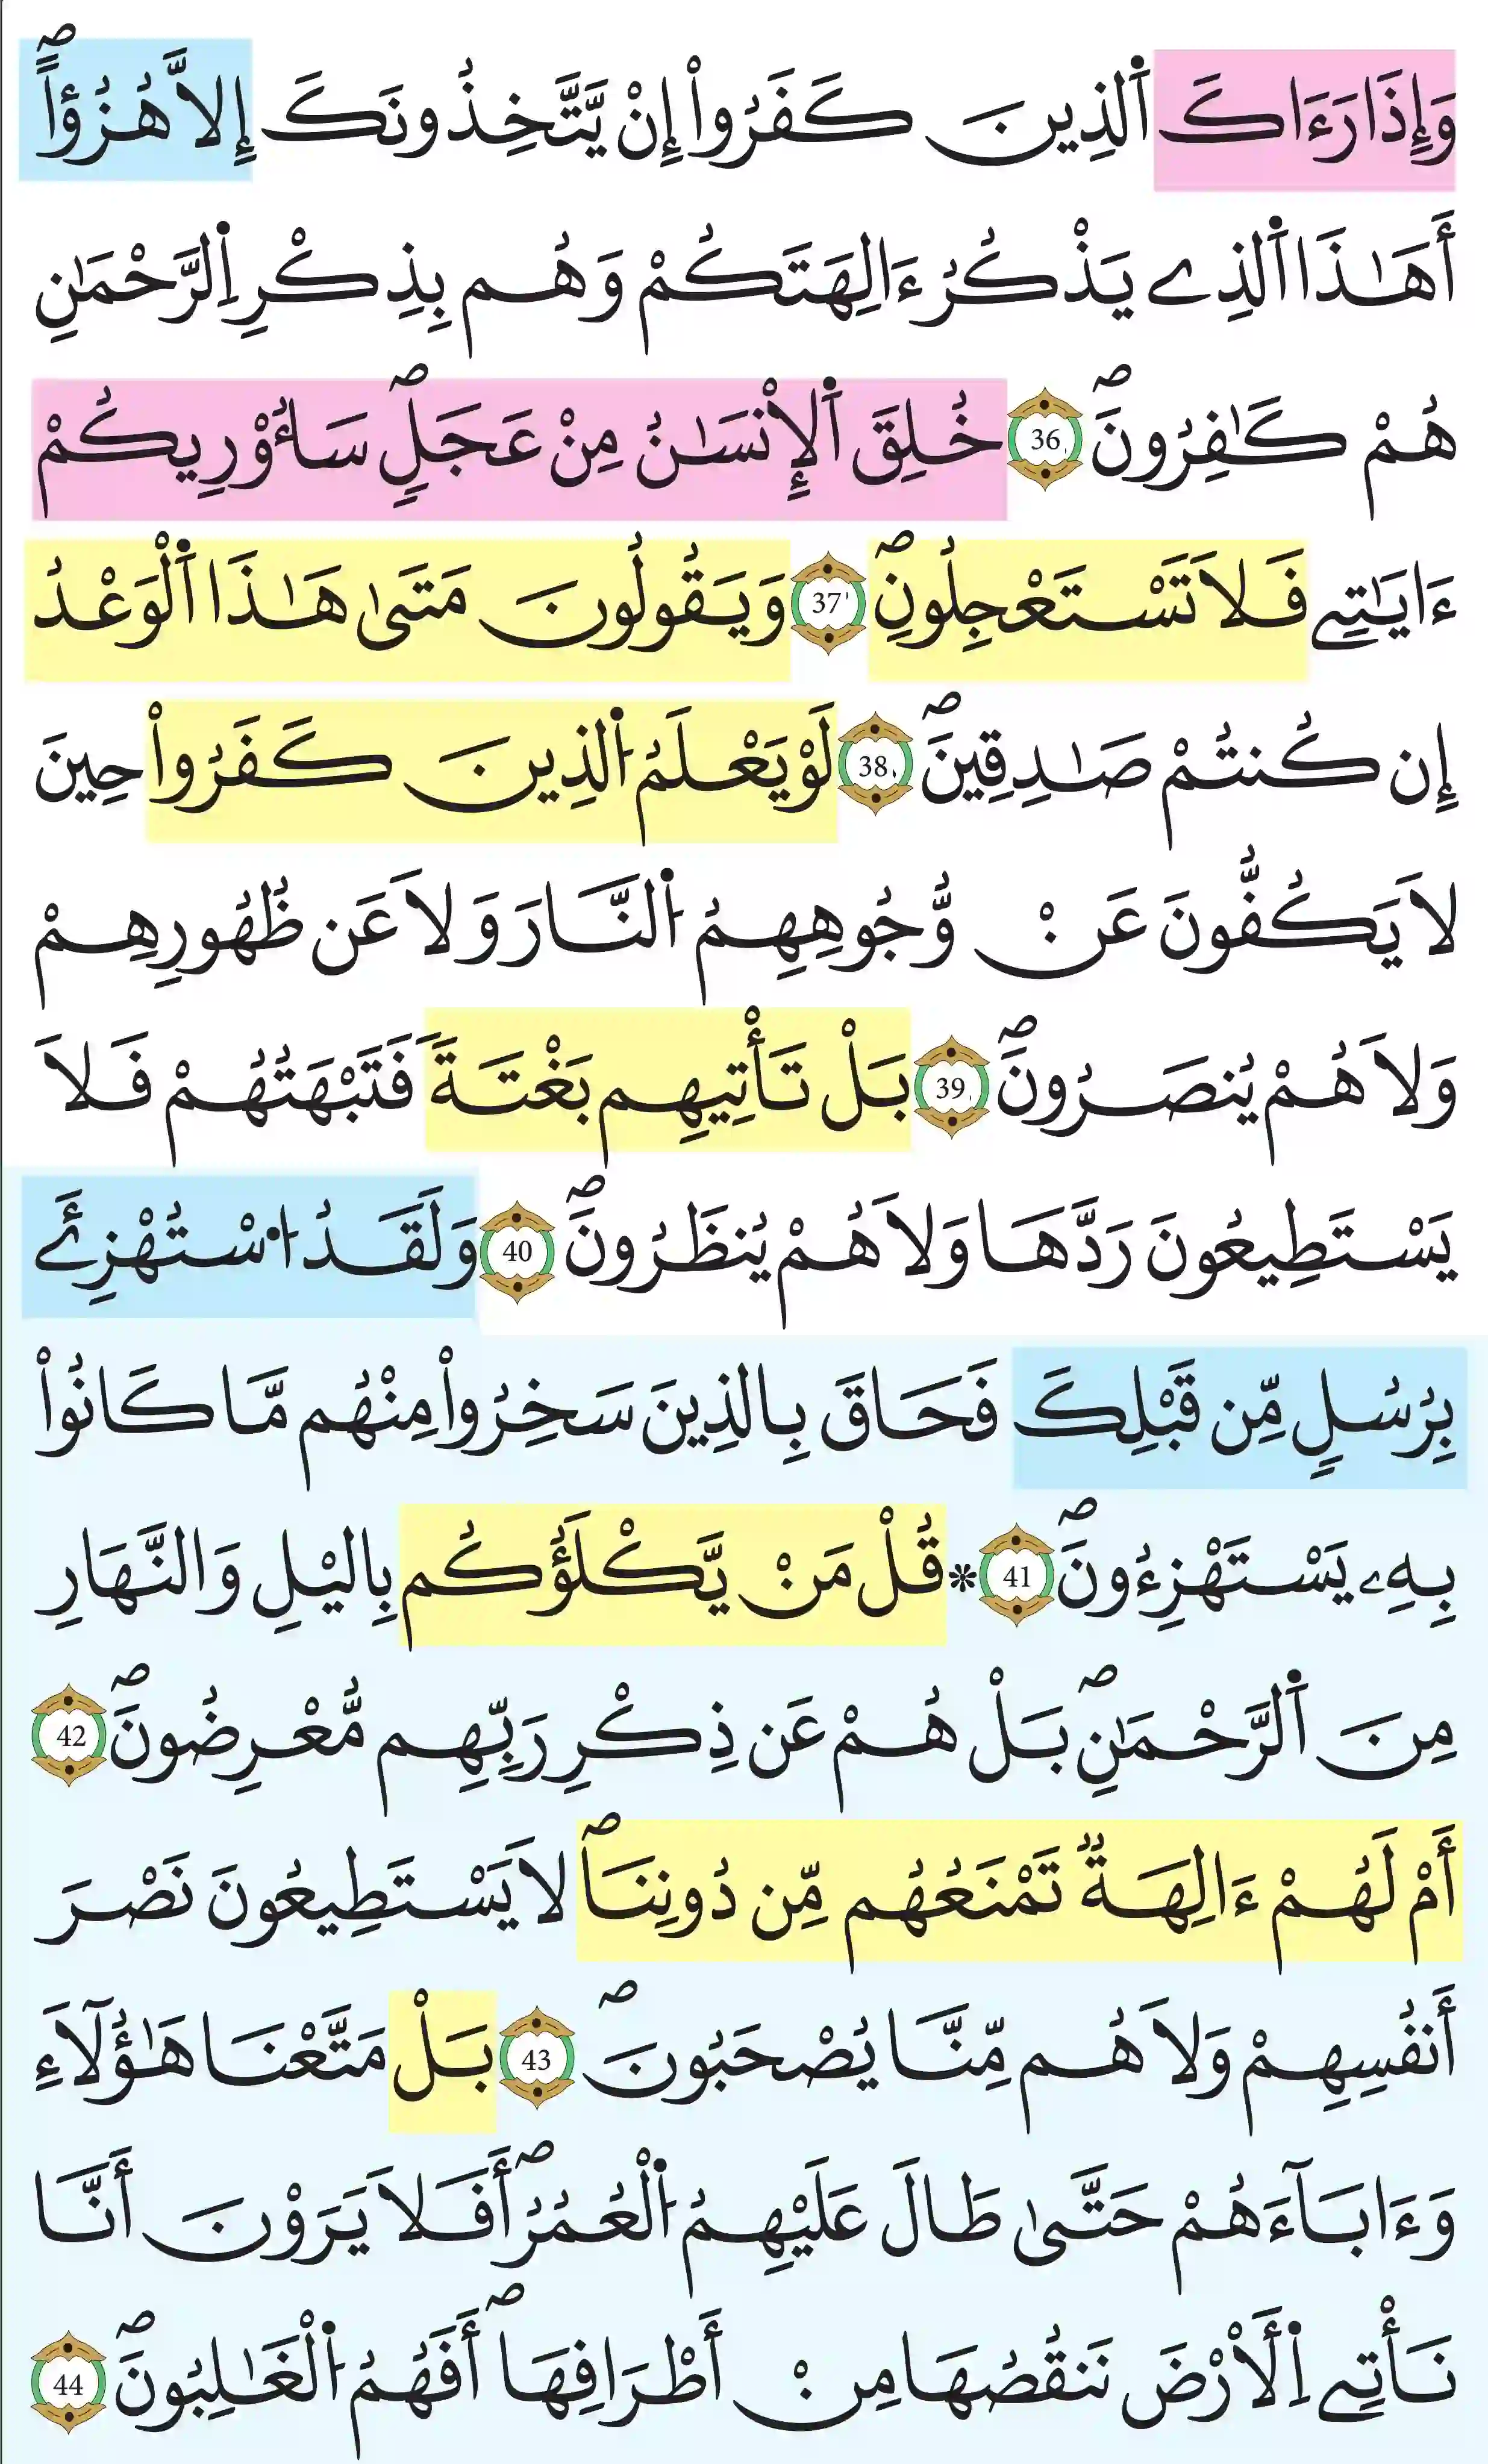 وَإِذَا رَءَاكَ ٱلذِينَ كَفَرُواْ إِنْ يَّتَّخِذُونَكَ إِلاَّ هُزُؤاًۖ
أَهَٰذَا ٱلذِے يَذْكُرُ ءَالِهَتَكُمْ وَهُم بِذِكْرِ اِ۬لرَّحْمَٰنِ
هُمْ كَٰفِرُونَۖ 36 خُلِقَ ٱلِانسَٰنُ مِنْ عَجَلٖۖ سَأُوْرِيكُمْ
ءَايَٰتِے فَلَا تَسْتَعْجِلُونِۖ 37 وَيَقُولُونَ مَتَىٰ هَٰذَا ٱلْوَعْدُ
إِن كُنتُمْ صَٰدِقِينَۖ 38 لَوْ يَعْلَمُ ا۬لذِينَ كَفَرُواْ حِينَ
لَا يَكُفُّونَ عَنْ وُّجُوهِهِمُ ا۬لنَّارَ وَلَا عَن ظُهُورِهِمْ
وَلَا هُمْ يُنصَرُونَۖ 39 بَلْ تَأْتِيهِم بَغْتَةٗ فَتَبْهَتُهُمْ فَلَا
يَسْتَطِيعُونَ رَدَّهَا وَلَا هُمْ يُنظَرُونَۖ 40 وَلَقَدُ ا۟سْتُهْزِئَ
بِرُسُلٖ مِّن قَبْلِكَ فَحَاقَ بِالذِينَ سَخِرُواْ مِنْهُم مَّا كَانُواْ
بِهِۦ يَسْتَهْزِءُونَۖ 41 * قُلْ مَنْ يَّكْلَؤُكُم بِاليْلِ وَالنَّهَارِ
مِنَ ٱلرَّحْمَٰنِۖ بَلْ هُمْ عَن ذِكْرِ رَبِّهِم مُّعْرِضُونَۖ 42
أَمْ لَهُمْ ءَالِهَةٞ تَمْنَعُهُم مِّن دُونِنَاۖ لَا يَسْتَطِيعُونَ نَصْرَ
أَنفُسِهِمْ وَلَا هُم مِّنَّا يُصْحَبُونَۖ 43 بَلْ مَتَّعْنَا هَٰؤُلَآءِ
وَءَابَآءَهُمْ حَتَّىٰ طَالَ عَلَيْهِمُ ا۬لْعُمُرُۖ أَفَلَا يَرَوْنَ أَنَّا
نَأْتِے اِ۬لَارْضَ نَنقُصُهَا مِنْ أَطْرَافِهَاۖ أَفَهُمُ ا۬لْغَٰلِبُونَۖ 44